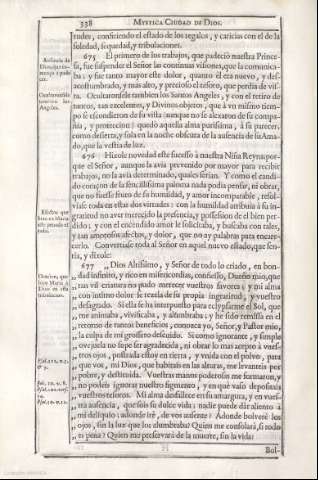 338 MYSTICA CIUDAD DE DIOS.
tudes, confiriendo el estado de los regalos, y caricias con el de la
soledad, sequedad, y tribulaciones.
675 El primero de los trabajos, que padeciò nuestra Prince-
sa, fue suspender el Señor las continuas visiones, que la comunica-
ba: y fue tanto mayor este dolor, quanto èl era nuevo, y des-
acostumbrado, y mas alto, y precioso el tesoro, que perdia de vis-
ta. Ocultaronsele tambien los Santos Angeles, y con el retiro de
tantos, tan excelentes, y Divinos objetos, que à vn mismo tiem-
po se escondieron de su vista (aunque no se alexaron de su compa-
ñia, y proteccion) quedò aquella alma purissima, à su parecer,
como desierta, y sola en la noche obscura de la ausencia de su Ama-
do, que la vestia de luz.
676 Hizole novedad este sucesso à nuestra Niña Reyna; por-
que el Señor, aunque la avia prevenido por mayor para recibir
trabajos, no la avia determinado, quales serian. Y como el candi-
do coraçon de la sencillissima paloma nada podia pensar, ni obrar,
que no fuesse fruto de su humildad, y amor incomparable, resol-
viase toda en estas dos virtudes: con la humildad atribuìa à su in-
gratitud no aver merecido la presencia, y possession de el bien per-
dido; y con el encendido amor le solicitaba, y buscaba con tales,
y tan amorosos afectos, y dolor, que no ay palabras para encare-
cerlo. Convertiase toda al Señor en aquel nuevo estado, que sen-
tia, y dixole:
677 „Dios Altissimo, y Señor de todo lo criado, en bon-
„dad infinito, y rico en misericordias, confiesso, Dueño mio, que
„tan vil criatura no pudo merecer vuestros favores; y mi alma
„con intimo dolor se rezela de su propia ingratitud, y vuestro
„desagrado. Si ella se ha interpuesto para eclypsarme el Sol, que
„me animaba, vivificaba, y alumbraba; y he sido remissa en el
„retorno de tantos beneficios, conozca yo, Señor, y Pastor mio,
„la culpa de mi grossero descuido. Si como ignorante, y simple
„ovejuela no supe ser agradecida, ni obrar lo mas acepto à vues-
„tros ojos, postrada estoy en tierra, y vnida con el polvo, para
„que vos, mi Dios, que habitais en las alturas, me levanteis por
„pobre, y destituìda. Vuestras manos poderosas me formaron, y
„no podeis ignorar nuestro figmento, y en què vaso depositais
„vuestros tesoros. Mi alma desfallece en su amargura, y en vues-
„tra ausencia, que sois su dulce vida: nadie puede dàr aliento à
„mi deliquio: adonde irè, de vos ausente? Adonde bolverè los
„ojos, sin la luz que los alumbraba? Quien me consolarà, si todo
„es pena? Quien me preservarà de la muerte, sin la vida?
Bol-